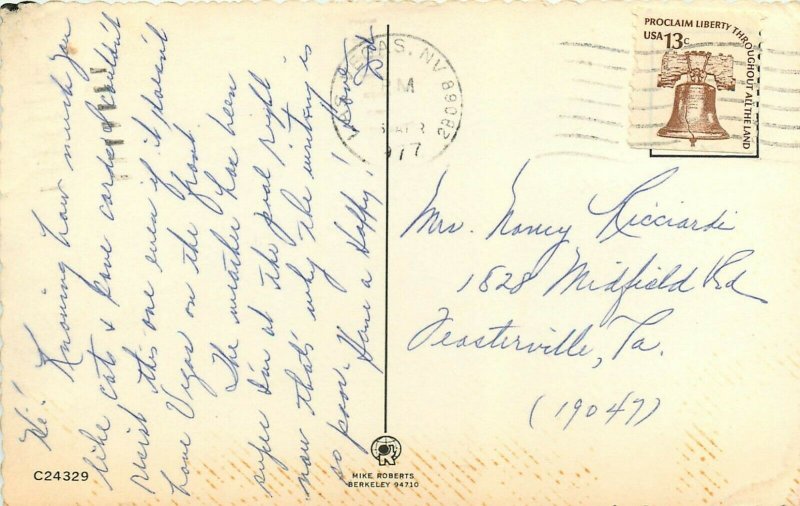 Hi! Knowing how much you
like cats & pone cards I couldn't
resist this one even if it doesn't
have Vegas on the front.
The weather has been
super. I'm at the pool right
now that's why the writing is
so poor. Have a Happy! Love
VEGAS, NV 89082
PM
1977
PROCLAIM LIBERTY THROUGHOUT ALL THE LAND
USA 13c
Mrs. Nancy Ricciardi
1828 Midfield Rd
Feasterville, Pa.
(19047)
C24329
MIKE ROBERTS
BERKELEY 94710